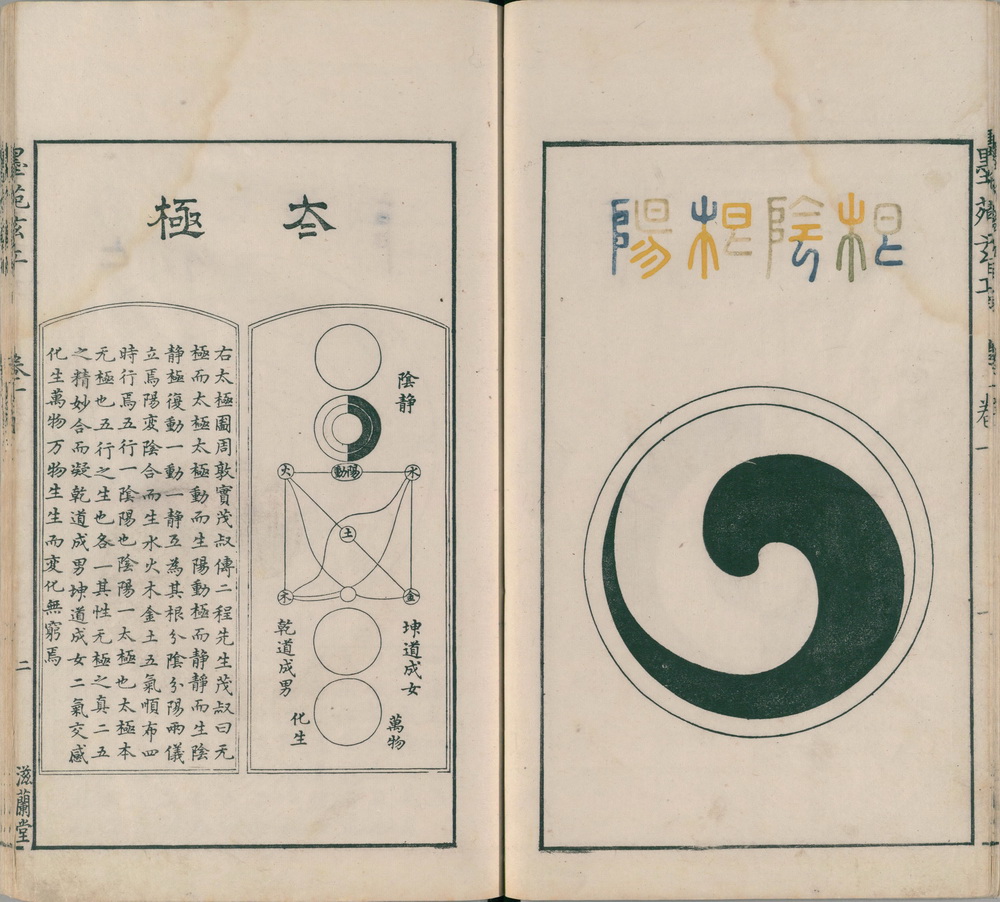 墨苑玄工
卷一
根陰根陽
夳極
陰静
陽動
水
火
土
金
木
坤道成女
乾道成男
萬物
化生
右太極圖周敦實茂叔傳二程先生茂叔曰无
極而太極太極動而生陽動極而静静而生陰
静極復動一動一静互為其根分陰分陽兩儀
立焉陽变陰合而生水火木金土五氣順布四
時行焉五行一陰陽也陰陽一太極也太極本
无極也五行之生也各一其性无極之真二五
之精妙合而凝乾道成男坤道成女二氣交感
化生萬物万物生生而变化無窮焉
墨苑玄工
二
滋蘭堂